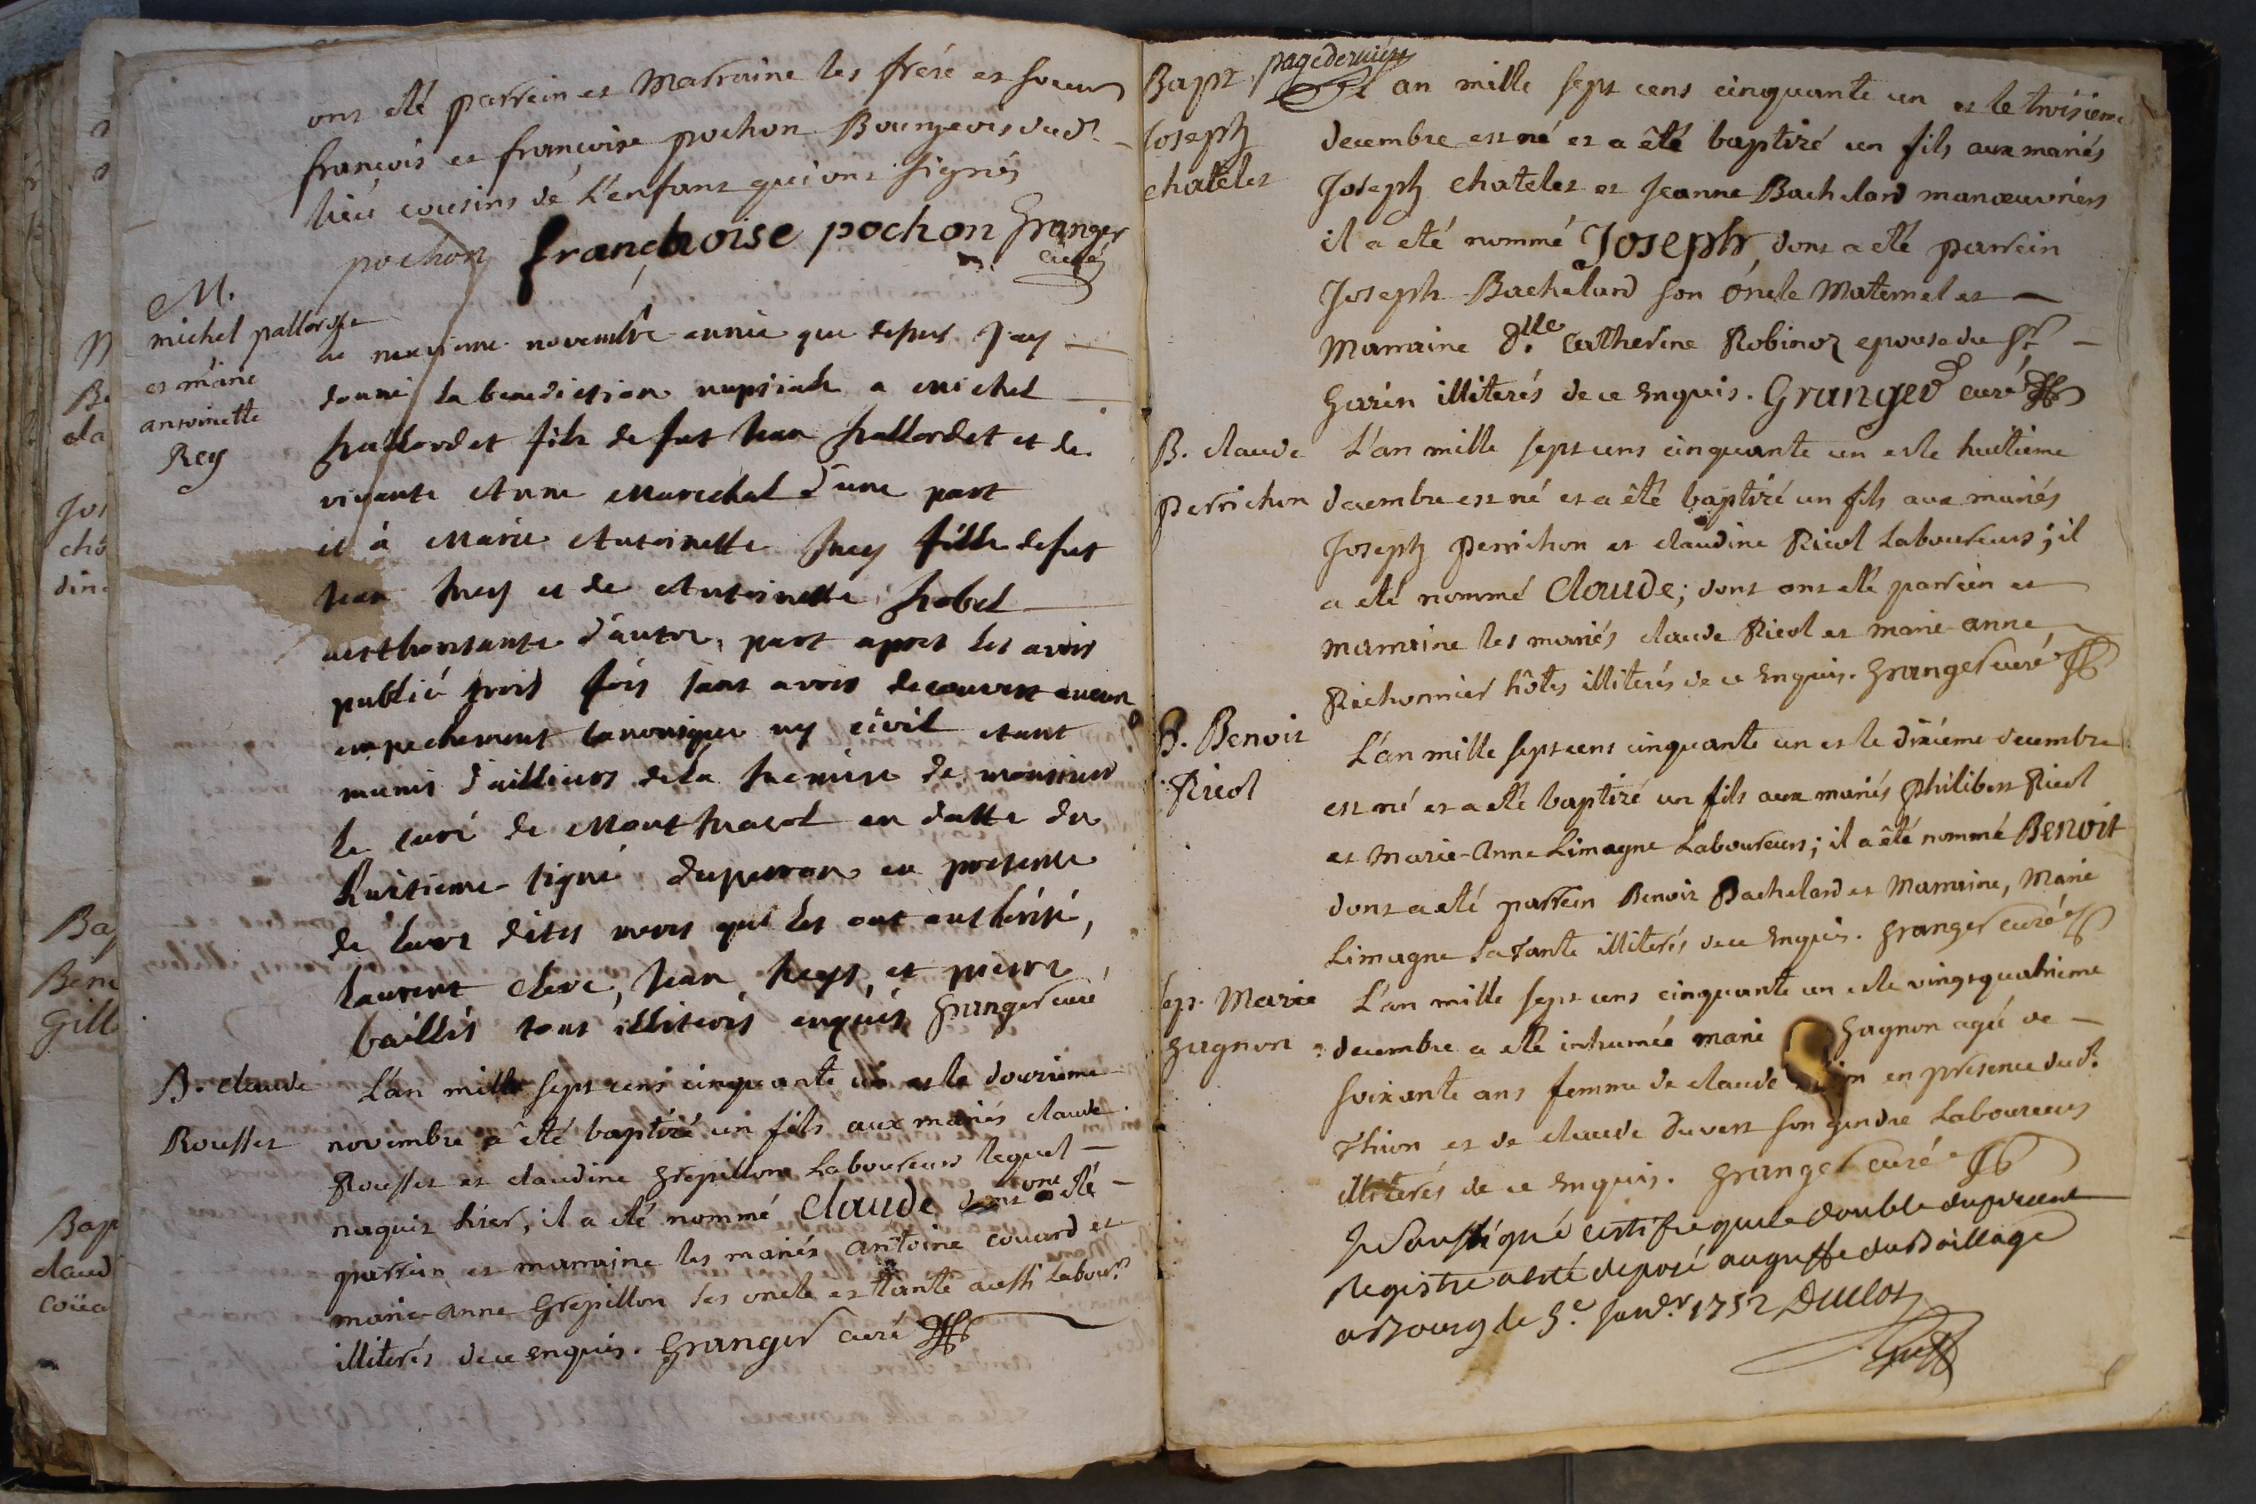 ont eté parrein et Marraine les frére et soeur
françois et françoise pochon Bourgeois dud.t
lieu cousins de L'enfant qui ont signés
pochon françhoise pochon Granger
curé
M.
michel pallordet
et marie
antoinette
Rey
le neuvieme novembre année que dessus j'ay
donné la benediction nuptiale a Michel
pallordet fils de fut Jean pallordet et de
vivante Anne Marechal d'une part
et à Marie Antoinette Rey fille de fut
Jean Rey et de Antoinette
authorisante d'autre part apres les avoir
publié trois fois sans avoir decouvert aucun
empechement canonique ny civil etant
munis d'ailleurs de la remise de monsieur
le curé de Montracol en datte du
huitieme signé duperron en presence
de leurs dites meres qui les ont authorisé,
laurent clerc, Jean Rey, et pierre
baillis tous illiterés enquis Granger curé
B. claude
Rousset
L'an mille sept cens cinquante un et le douzieme
novembre a été baptizé un fils aux mariés claude
Rousset et claudine Grepillon Laboureurs lequel
naquit hier, il a eté nommé Claude dont ont eté
parrein et marraine les mariés antoine couard et
marie-anne Grepillon ses oncle et tante aussi Labour.rs
illiterés de ce enquis. Granger curé
Bapt. page derniere
Joseph
chatelet
L'an mille sept cens cinquante un et le troisieme
decembre est né et a été baptizé un fils aux mariés
Joseph chatelet et Jeanne Bachelard manœuvriers
il a eté nommé Joseph, dont a eté parrein
Joseph Bachelard son oncle Maternel et
Marraine d.lle Catherine Robinot epouse du S.r
Garin illiterés de ce Enquis. Granger curé
B. claude
perrichon
L'an mille sept cens cinquante un et le huitieme
decembre est né et a été baptizé un fils aux mariés
Joseph perrichon et claudine Ricol Laboureurs; il
a eté nommé Claude; dont ont eté parrein et
marraine les mariés claude Ricol et marie-anne
Richonnier hôtes illiterés de ce Enquis. Granger curé
B. Benoit
Ricol
L'an mille sept cens cinquante un et le dixiéme decembre
est né et a eté baptizé un fils aux mariés philibert Ricol
et Marie-Anne Limagne Laboureurs; il a été nommé Benoit
dont a eté parrein Benoit Bachelard et Marraine, Marie
Limagne sa tante illiterés de ce Enquis. Granger curé
sep. Marie
gagnon
L'an mille sept cens cinquante un et le vingt quatrieme
decembre a eté inhumée marie gagnon agée de
soixante ans femme de claude en presence dud.t
Thion et de claude Duvert son gendre Laboureurs
illiterés de ce Enquis. Granger curé
Je Soussigné certifie que le double du present
Registre a eté deposé au greffe du Baillage
a Bourg le 5.e Janv.r 1752 Duclos
greff